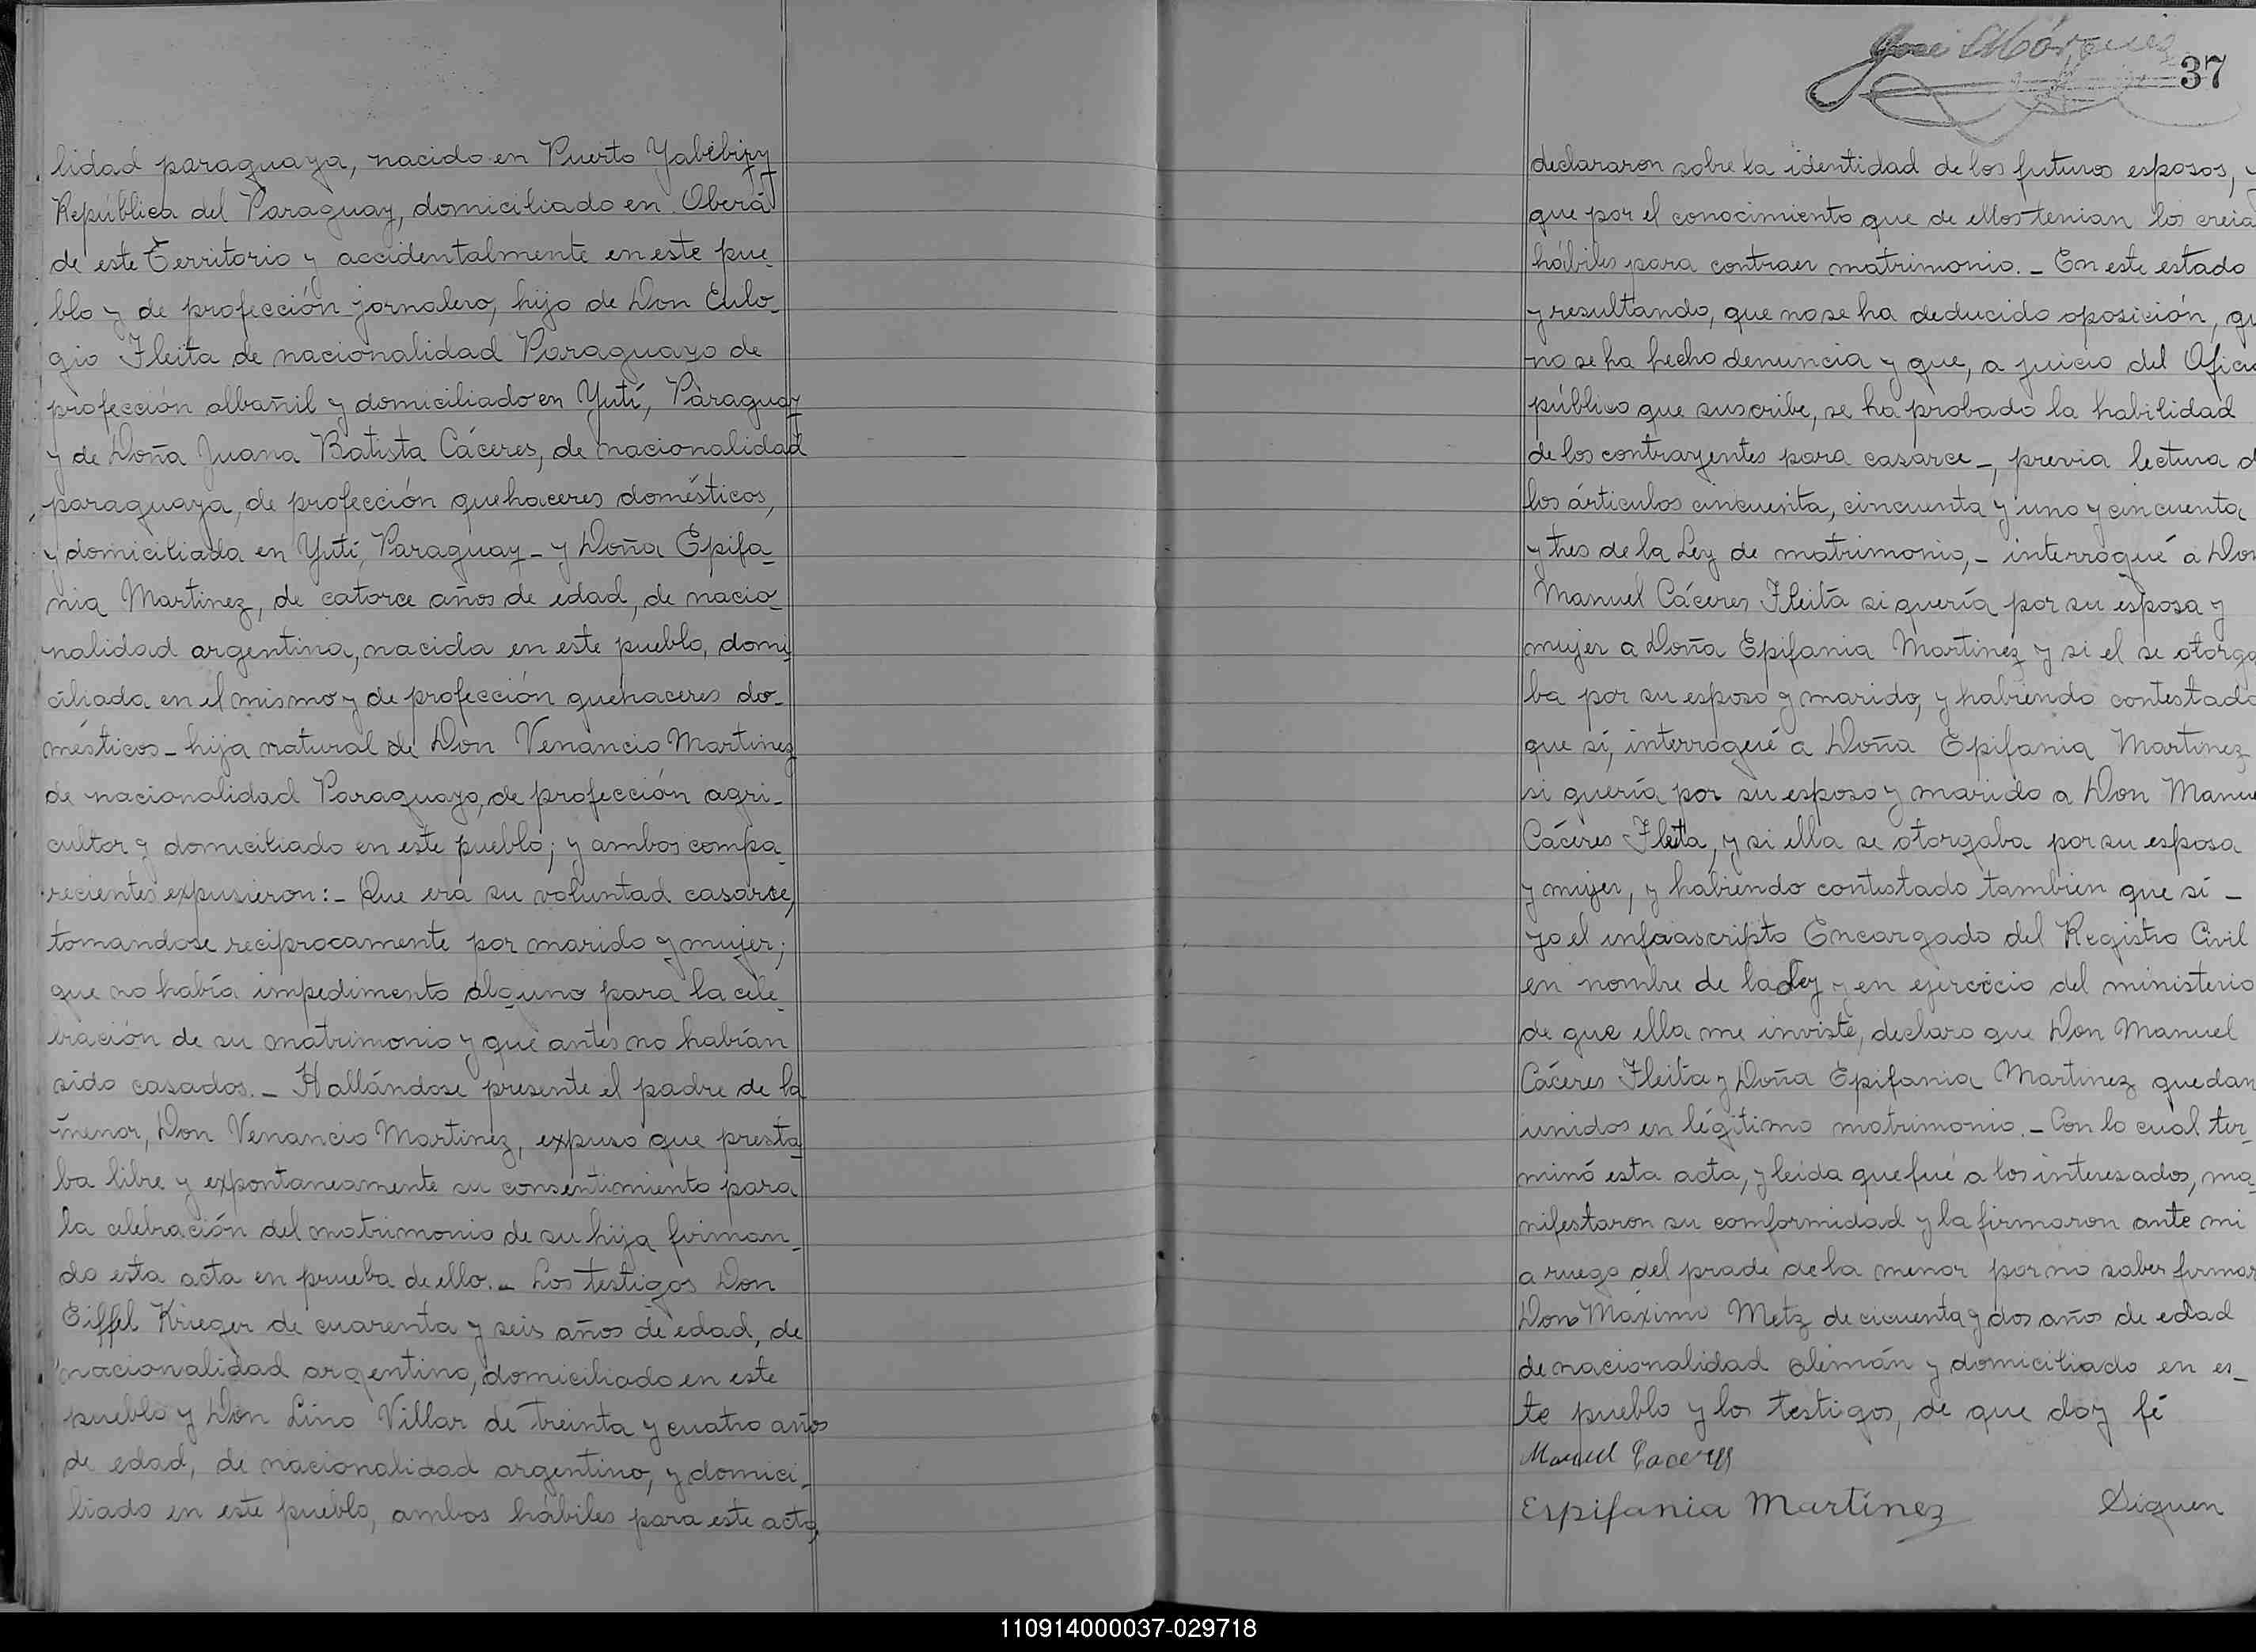 lidad paraguaya, nacido en Puerto Yabebiry
República del Paraguay, domiciliado en Oberá
de este Territorio y accidentalmente en este pue-
blo y de profección jornalero, hijo de Don Eulo-
gio Fleita de nacionalidad Paraguayo de
profección albañil y domiciliado en Yutí, Paraguay
y de Doña Juana Batista Cáceres, de nacionalidad
paraguaya, de profección quehaceres domésticos,
y domiciliada en Yutí, Paraguay - y Doña Epifa-
nia Martinez, de catorce años de edad, de nacio-
nalidad argentina, nacida en este pueblo, domi-
ciliada en el mismo y de profección quehaceres do-
mésticos - hija natural de Don Venancio Martinez
de nacionalidad Paraguayo, de profección agri-
cultor y domiciliado en este pueblo; y ambos compa-
recientes expusieron: - Que era su voluntad casarce,
tomandose reciprocamente por marido y mujer;
que no había impedimento alguno para la cele-
bración de su matrimonio y que antes no habían
sido casados. - Hallándose presente el padre de la
menor, Don Venancio Martinez, expuso que presta-
ba libre y expontaneamente su consentimiento para
la celebración del matrimonio de su hija firman-
do esta acta en prueba de ello. - Los testigos Don
Eiffel Krieger de cuarenta y seis años de edad, de
nacionalidad argentino, domiciliado en este
pueblo y Don Lino Villar de treinta y cuatro años
de edad, de nacionalidad argentino, y domici-
liado en este pueblo, ambos hábiles para este acto,
José Márquez
37
declararon sobre la identidad de los futuros esposos, y
que por el conocimiento que de ellos tenian los creia
hábiles para contraer matrimonio. - En este estado
y resultando, que no se ha deducido oposición, qu
no se ha hecho denuncia y que, a juicio del Oficia
público que suscribe, se ha probado la habilidad
de los contrayentes para casarce -, previa lectura d
los árticulos cincuenta, cincuenta y uno y cincuenta
y tres de la Ley de matrimonio, - interrogué a Don
Manuel Cáceres Fleita si quería por su esposa y
mujer a Doña Epifania Martinez y si el se otorga
ba por su esposo y marido, y habiendo contestado
que sí, interrogué a Doña Epifania Martinez
si quería por su esposo y marido a Don Manue
Cáceres Fleita, y si ella se otorgaba por su esposa
y mujer, y habiendo contestado tambien que sí -
yo el infraascripto Encargado del Registro Civil
en nombre de la Ley y en ejercicio del ministerio
de que ella me inviste, declaro que Don Manuel
Cáceres Fleita y Doña Epifania Martinez quedan
unidos en légitimo matrimonio. - Con lo cual ter-
minó esta acta, y leida que fué a los interesados, ma-
nifestaron su comformidad y la firmaron ante mi
a ruego del prade de la menor por no saber firmar
Don Máximo Metz de cicuenta y dos años de edad
de nacionalidad alemán y domiciliado en es-
te pueblo y los testigos, de que doy fé
Manuel Caceres
Espifania Martínez Siguen
110914000037-029718